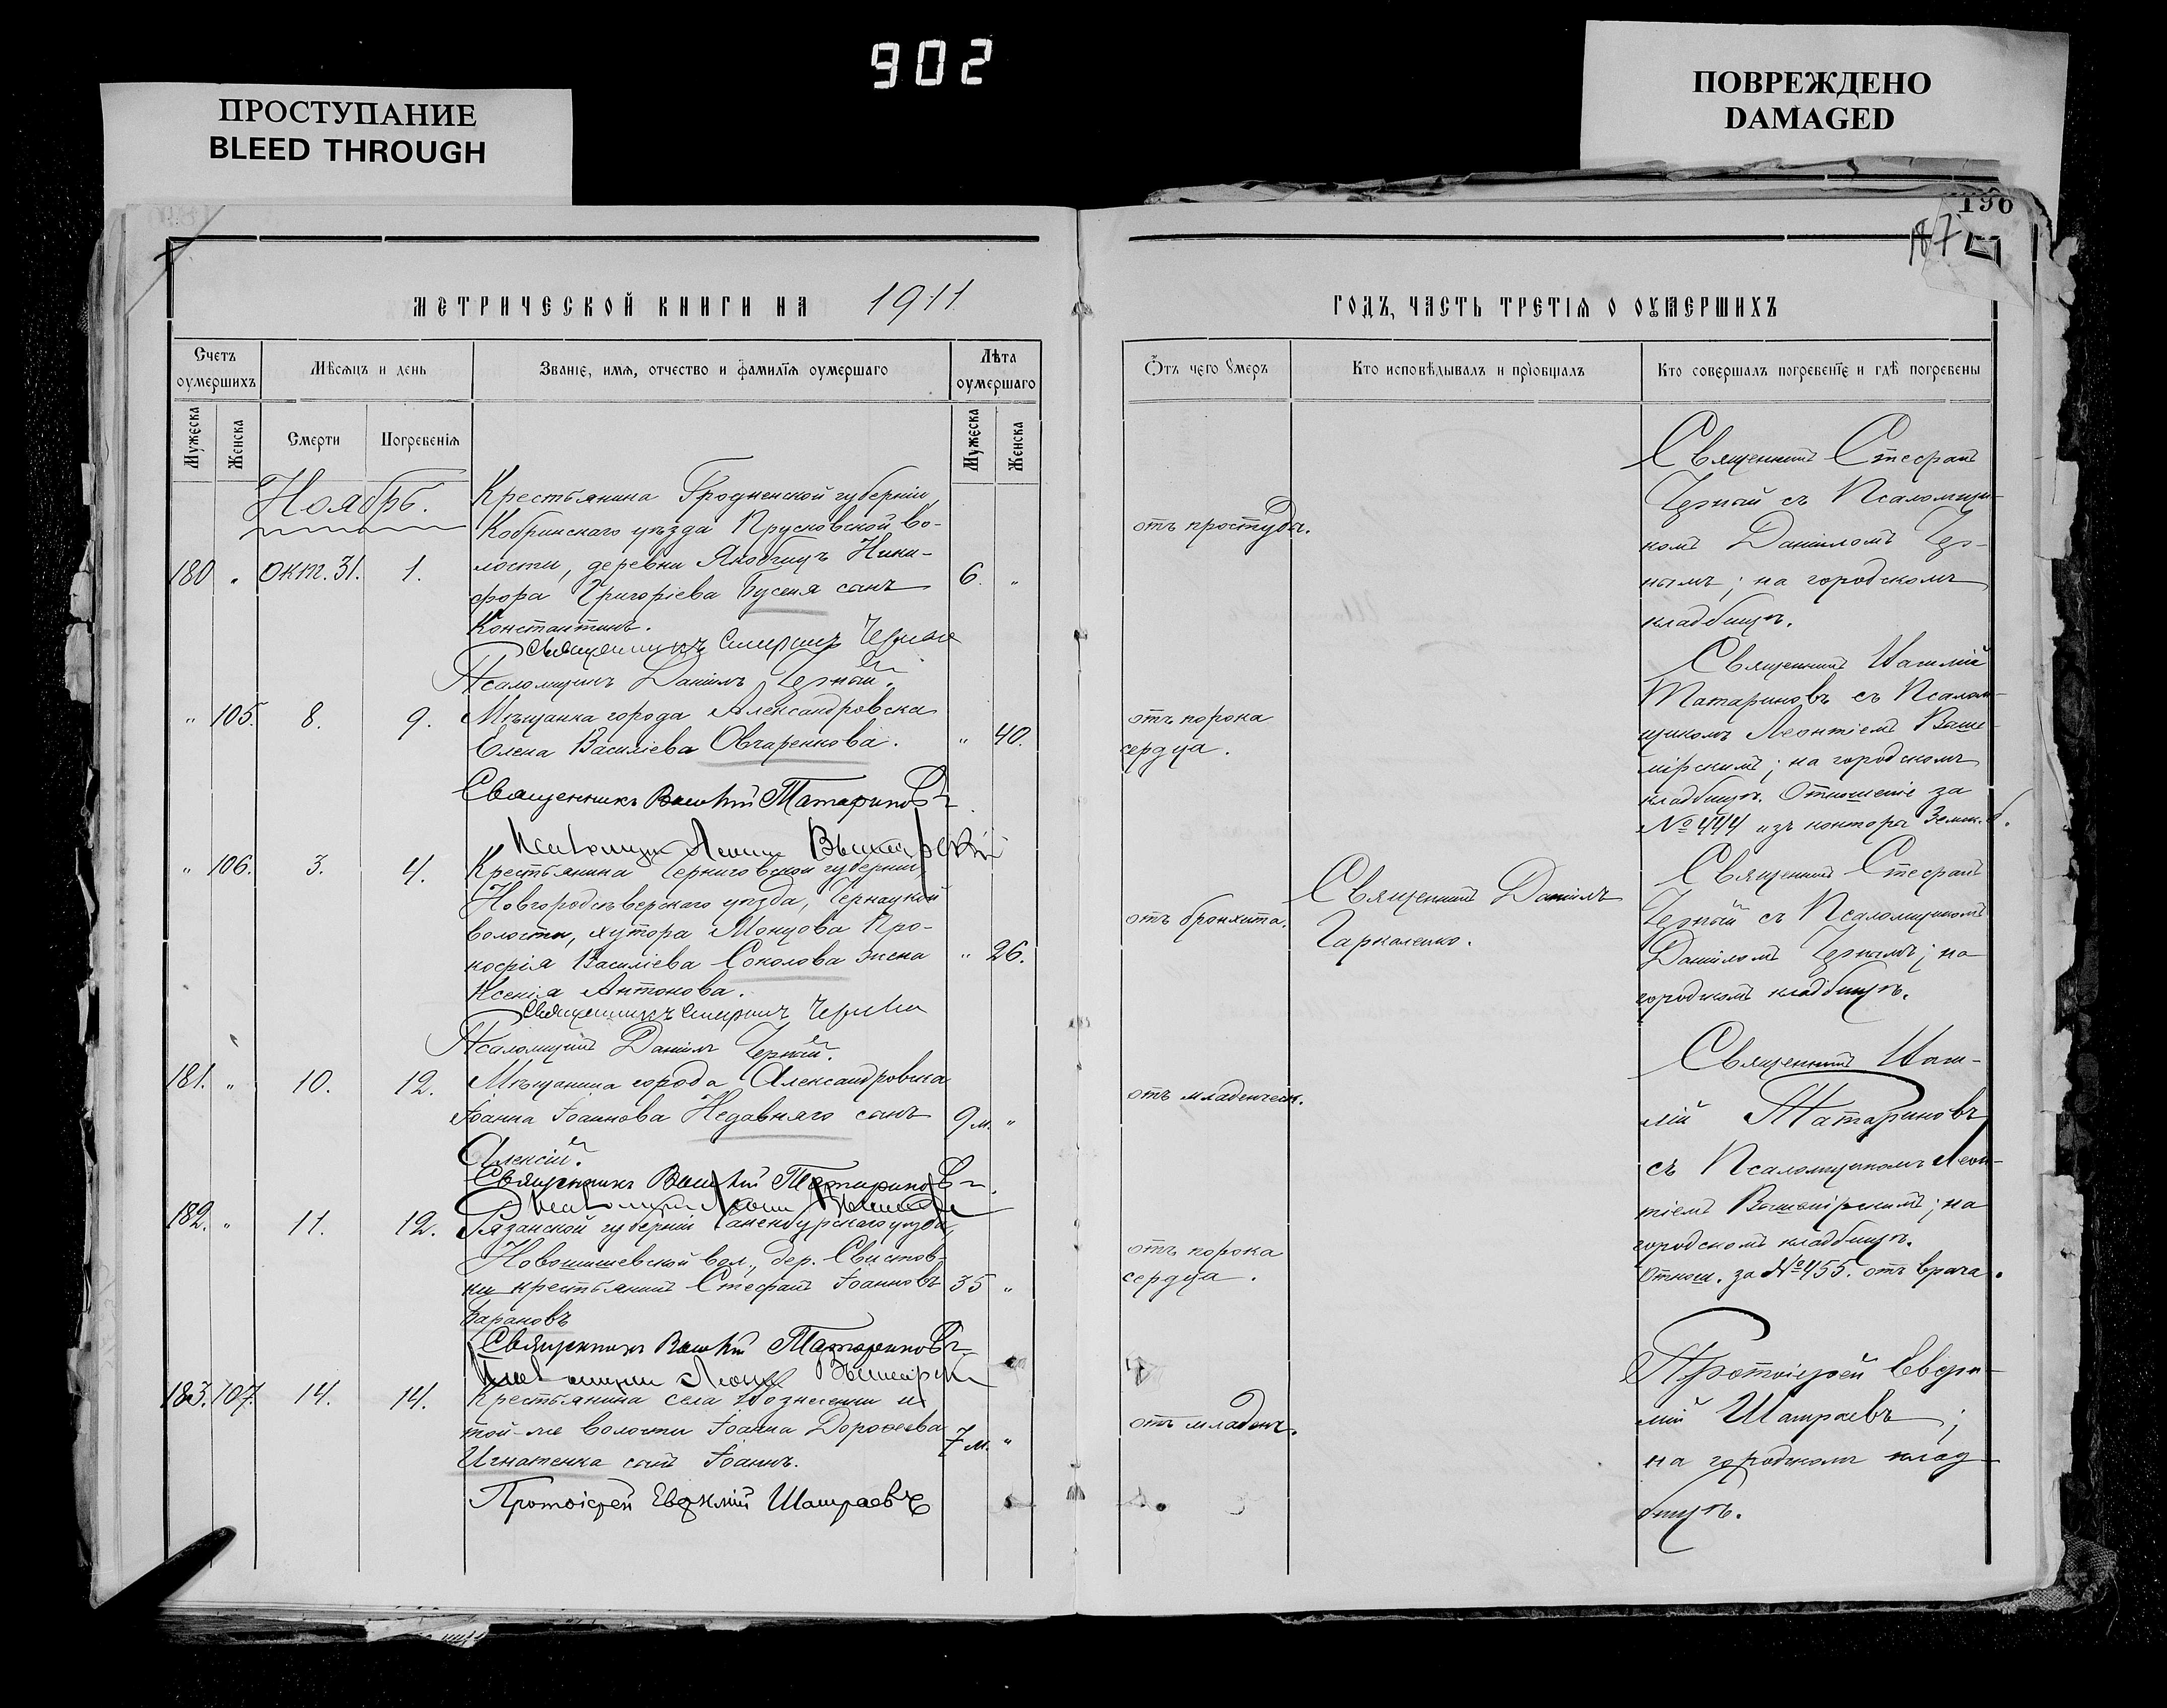 902
ПРОСТУПАНИЕ
BLEED THROUGH
ПОВРЕЖДЕНО
DAMAGED
190
187
МЕТРИЧЕСКОЙ КНИГИ НА 1911
Счетъ оумершихъ
Мѣсяцъ и день
Званіе, имя, отчество и фамилія оумершаго
Лѣта оумершаго
Мужеска
Женска
Смерти
Погребенія
Мужеска
Женска
Ноябрь.
Крестьянина Гродненской губерніи,
Кобринскаго уѣзда Прусковской во-
лости, деревни Ники-
180 " окт. 31. 1.
фора Григоріева Бусеня сынъ 6. "
Константинъ.
Священникъ Стефанъ Черный
Псаломщикъ Даніилъ Черный.
" 105. 8. 9. Мѣщанка города Александровска
Елена Василіева Овчаренкова. " 40.
Священникъ Василій Татариновъ
Псаломщикъ
" 106. 3. 4. Крестьянина Черниговской губерніи,
Новгородсѣверскаго уѣзда,
волости, хутора Про-
кофія Василіева Соколова жена " 26.
Ксенія Антонова.
Священникъ Стефанъ Черный
Псаломщикъ Даніилъ Черный.
181. " 10. 12. Мѣщанина города Александровска
Іоанна Іоаннова Недавняго сынъ 9 м. "
Алексій.
Священникъ Василій Татариновъ
182. " 11. 12. Рязанской губерніи Раненбургскаго уѣзда,
вол., дер. Свистов-
ки крестьянинъ Стефанъ Іоанновъ 35 "
Барановъ
Священникъ Василій Татариновъ
183. 107. 14. 14. Крестьянина села Вознесенки и
той-же волости Іоанна Дороѳеева 7 м. "
Игнатенка сынъ Іоаннъ.
Протоіерей Евѳимій Шатраевъ
ГОДЪ, ЧАСТЬ ТРЕТІЯ О ОУМЕРШИХЪ
Отъ чего умеръ
Кто исповѣдывалъ и пріобщалъ
Кто совершалъ погребеніе и гдѣ погребены
отъ простуды.
Священникъ Стефанъ
Черный съ Псаломщи-
комъ Даніиломъ Чер-
нымъ; на городскомъ
кладбищѣ.
отъ порока
сердца.
Священникъ Василій
Татариновъ съ Псалом-
щикомъ Леонтіемъ
на городскомъ
кладбищѣ. Отношеніе за
№ 444 изъ конторы
отъ бронхита.
Священникъ Даніилъ
Гаркаленко.
Священникъ Стефанъ
Черный съ Псаломщикомъ
Даніиломъ Чернымъ; на
городскомъ кладбищѣ.
отъ младенческ.
Священникъ Васи-
лій Татариновъ
съ Псаломщикомъ Леон-
тіемъ на
городскомъ кладбищѣ.
Отнош. за № 455. отъ врача.
отъ порока
сердца.
отъ младенч.
Протоіерей Евѳи-
мій Шатраевъ;
на городскомъ клад-
бищѣ.